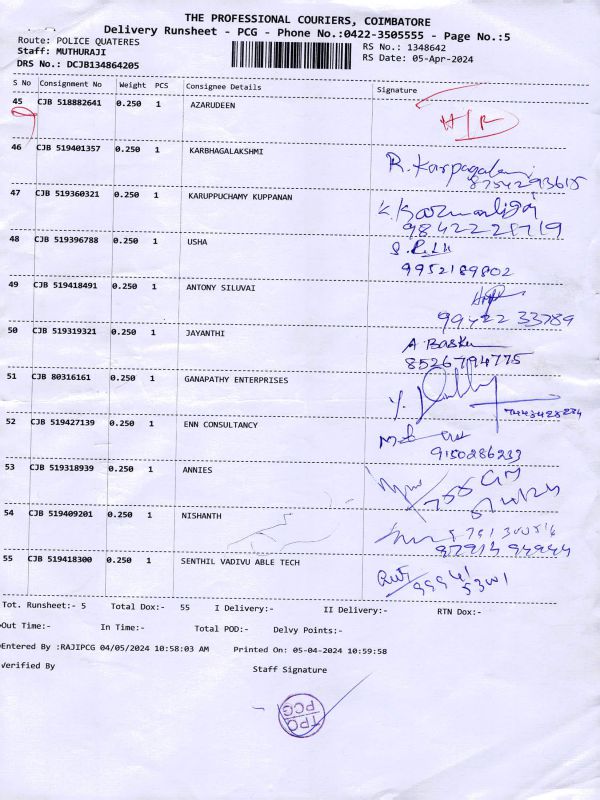 THE PROFESSIONAL COURIERS, COIMBATORE
Delivery Runsheet - PCG - Phone No.:0422-3505555 - Page No.:5
Route: POLICE QUATERES
RS No.: 1348642
Staff: MUTHURAJI
RS Date: 05-Apr-2024
DRS No.: DCJB134864205
S No Consignment No Weight PCS Consignee Details Signature
45 CJB 518882641 0.250 1 AZARUDEEN
H/R
46 CJB 519401357 0.250 1 KARBHAGALAKSHMI
R. Karpagalami
8754293615
47 CJB 519360321 0.250 1 KARUPPUCHAMY KUPPANAN
9842228719
48 CJB 519396788 0.250 1 USHA
9952189802
49 CJB 519418491 0.250 1 ANTONY SILUVAI
99422 33789
50 CJB 519319321 0.250 1 JAYANTHI
A Basker
8526794775
51 CJB 80316161 0.250 1 GANAPATHY ENTERPRISES
52 CJB 519427139 0.250 1 ENN CONSULTANCY
9150286233
53 CJB 519318939 0.250 1 ANNIES
54 CJB 519409201 0.250 1 NISHANTH
55 CJB 519418300 0.250 1 SENTHIL VADIVU ABLE TECH
Tot. Runsheet:- 5 Total Dox:- 55 I Delivery:- II Delivery:- RTN Dox:-
Out Time:- In Time:- Total POD:- Delvy Points:-
Entered By :RAJIPCG 04/05/2024 10:58:03 AM Printed On: 05-04-2024 10:59:58
Verified By Staff Signature
TPC
PCG